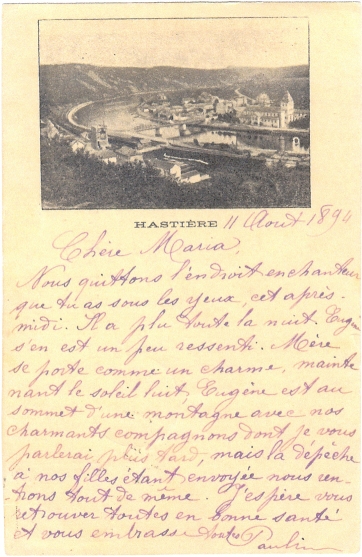 HASTIÈRE 11 Août 1894
Chère Maria,
Nous quittons l'endroit enchanteur
que tu as sous les yeux, cet après-
midi. Il a plu toute la nuit Eugè
s'en est un peu ressenti. Mère
se porte comme un charme, mainte
nant le soleil luit, Eugène est au
sommet d'une montagne avec nos
charmants compagnons dont je vous
parlerai plus tard, mais la dépêche
à nos filles étant envoyée nous ren-
trons tout de même. J'espère vous
retrouver toutes en bonne santé
et vous embrasse toutes Paulin